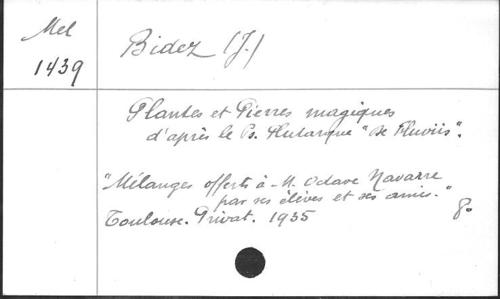 Mel
1439
Bidez (J.)
Plantes et Pierres magiques
d'après le Ps. Plutarque "De Fluviis".
"Mélanges offerts à M. Octave Navarre
par ses élèves et ses amis."
Toulouse. Privat. 1935
8°